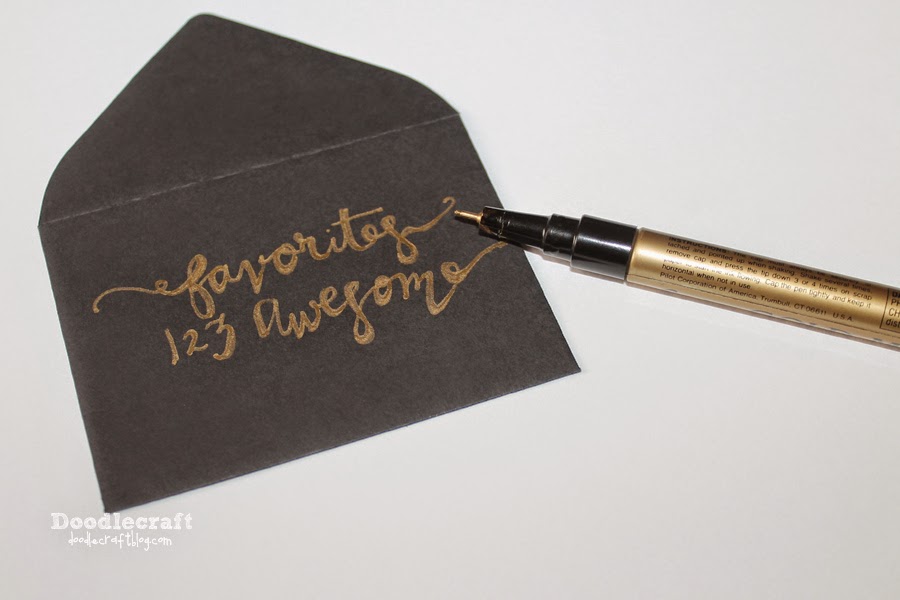 favorites
123 Awesome
remove cap and press the tip down 3 or 4 times on scrap
horizontal when not in use.
Pilot Corporation of America, Trumbull, CT 06611 U.S.A.
Doodlecraft
doodlecraftblog.com